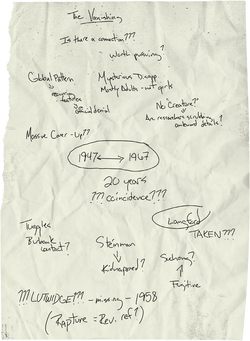 The Vanishing
Is there a connection???
Worth pursuing?
Global Pattern
Mysterious Disapp
Mostly Adults - not girls
official denial
No Creature?
Are researchers scrubbing
onboard details?
Massive Cover-Up??
1947 ⟷ 1967
20 years
??? coincidence???
Langford
TAKEN???
Tuggles
Burbank
contact?
Steinman
Kidnapped?
Suchong?
Fugitive
??? LUTWIDGE??? - missing - 1958
(Rapture = Rev. ref?)